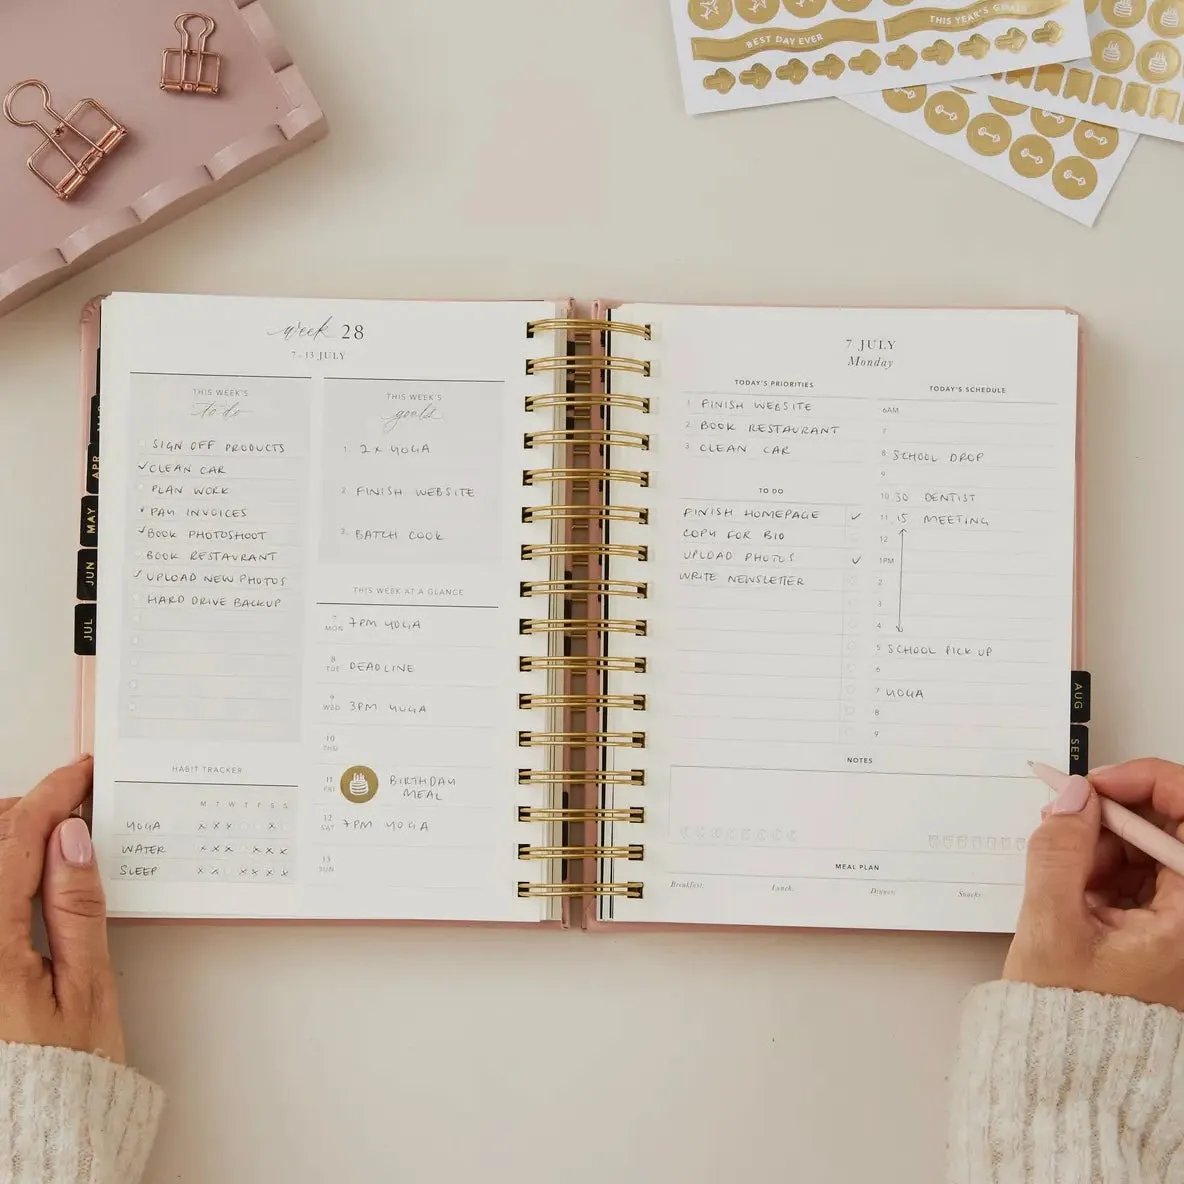 BEST DAY EVER
THIS YEAR'S GOALS
week 28
7-13 JULY
THIS WEEK'S
to do
SIGN OFF PRODUCTS
✓ CLEAN CAR
PLAN WORK
✓ PAY INVOICES
✓ BOOK PHOTOSHOOT
BOOK RESTAURANT
✓ UPLOAD NEW PHOTOS
HARD DRIVE BACKUP
THIS WEEK'S
goals
1. 2 x YOGA
2. FINISH WEBSITE
3. BATCH COOK
THIS WEEK AT A GLANCE
7 MON 7PM YOGA
8 TUE DEADLINE
9 WED 3PM YOGA
10 THU
11 FRI BIRTHDAY
MEAL
12 SAT 7PM YOGA
13 SUN
HABIT TRACKER
M T W T F S S
YOGA x x x x
WATER x x x x x x
SLEEP x x x x x x
APR
MAY
JUN
JUL
7 JULY
Monday
TODAY'S PRIORITIES
1. FINISH WEBSITE
2. BOOK RESTAURANT
3. CLEAN CAR
TO DO
FINISH HOMEPAGE ✓
COPY FOR BIO
UPLOAD PHOTOS ✓
WRITE NEWSLETTER
TODAY'S SCHEDULE
6AM
7
8 SCHOOL DROP
9
10.30 DENTIST
11.15 MEETING
12
1PM
2
3
4
5 SCHOOL PICK UP
6
7 YOGA
8
9
NOTES
MEAL PLAN
Breakfast: Lunch: Dinner: Snacks:
AUG
SEP